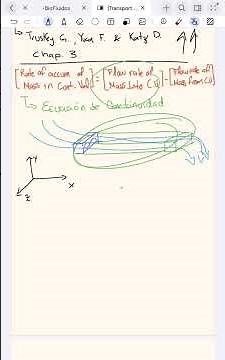 BioFluidos
(Transport.
↳ Truskey G., Yuan F. & Katz D.
Chap. 3
[Rate of accum of Mass in Cont. Vol] = [Flow rate of Mass into CV] - [Flow rate of Mass from CV]
↳ Ecuación de Continuidad
y
x
z